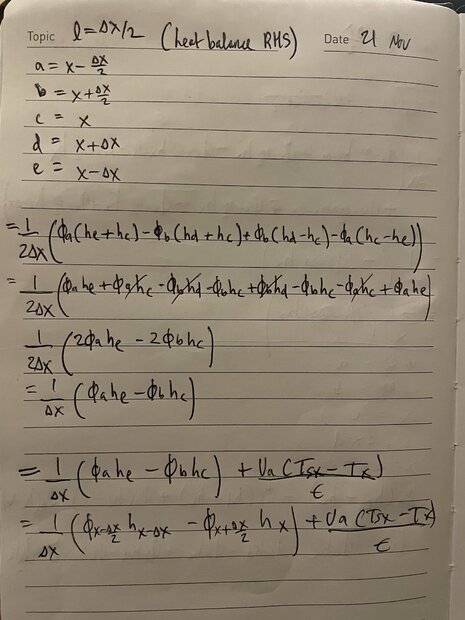 Topic l = Δx/2 (heat balance RHS) Date 21 Nov
a = x - Δx/2
b = x + Δx/2
c = x
d = x + Δx
e = x - Δx
= 1/2Δx (ϕa(he + hc) - ϕb(hd + hc) + ϕb(hd - hc) - ϕa(hc - he))
= 1/2Δx (ϕahe + ϕahc - ϕbhd - ϕbhc + ϕbhd - ϕbhc - ϕahc + ϕahe)
1/2Δx (2ϕahe - 2ϕbhc)
= 1/Δx (ϕahe - ϕbhc)
= 1/Δx (ϕahe - ϕbhc) + Ua(Tsx - Tx)/ϵ
= 1/Δx (ϕx-Δx/2 hx-Δx - ϕx+Δx/2 hx) + Ua(Tsx - Tx)/ϵ